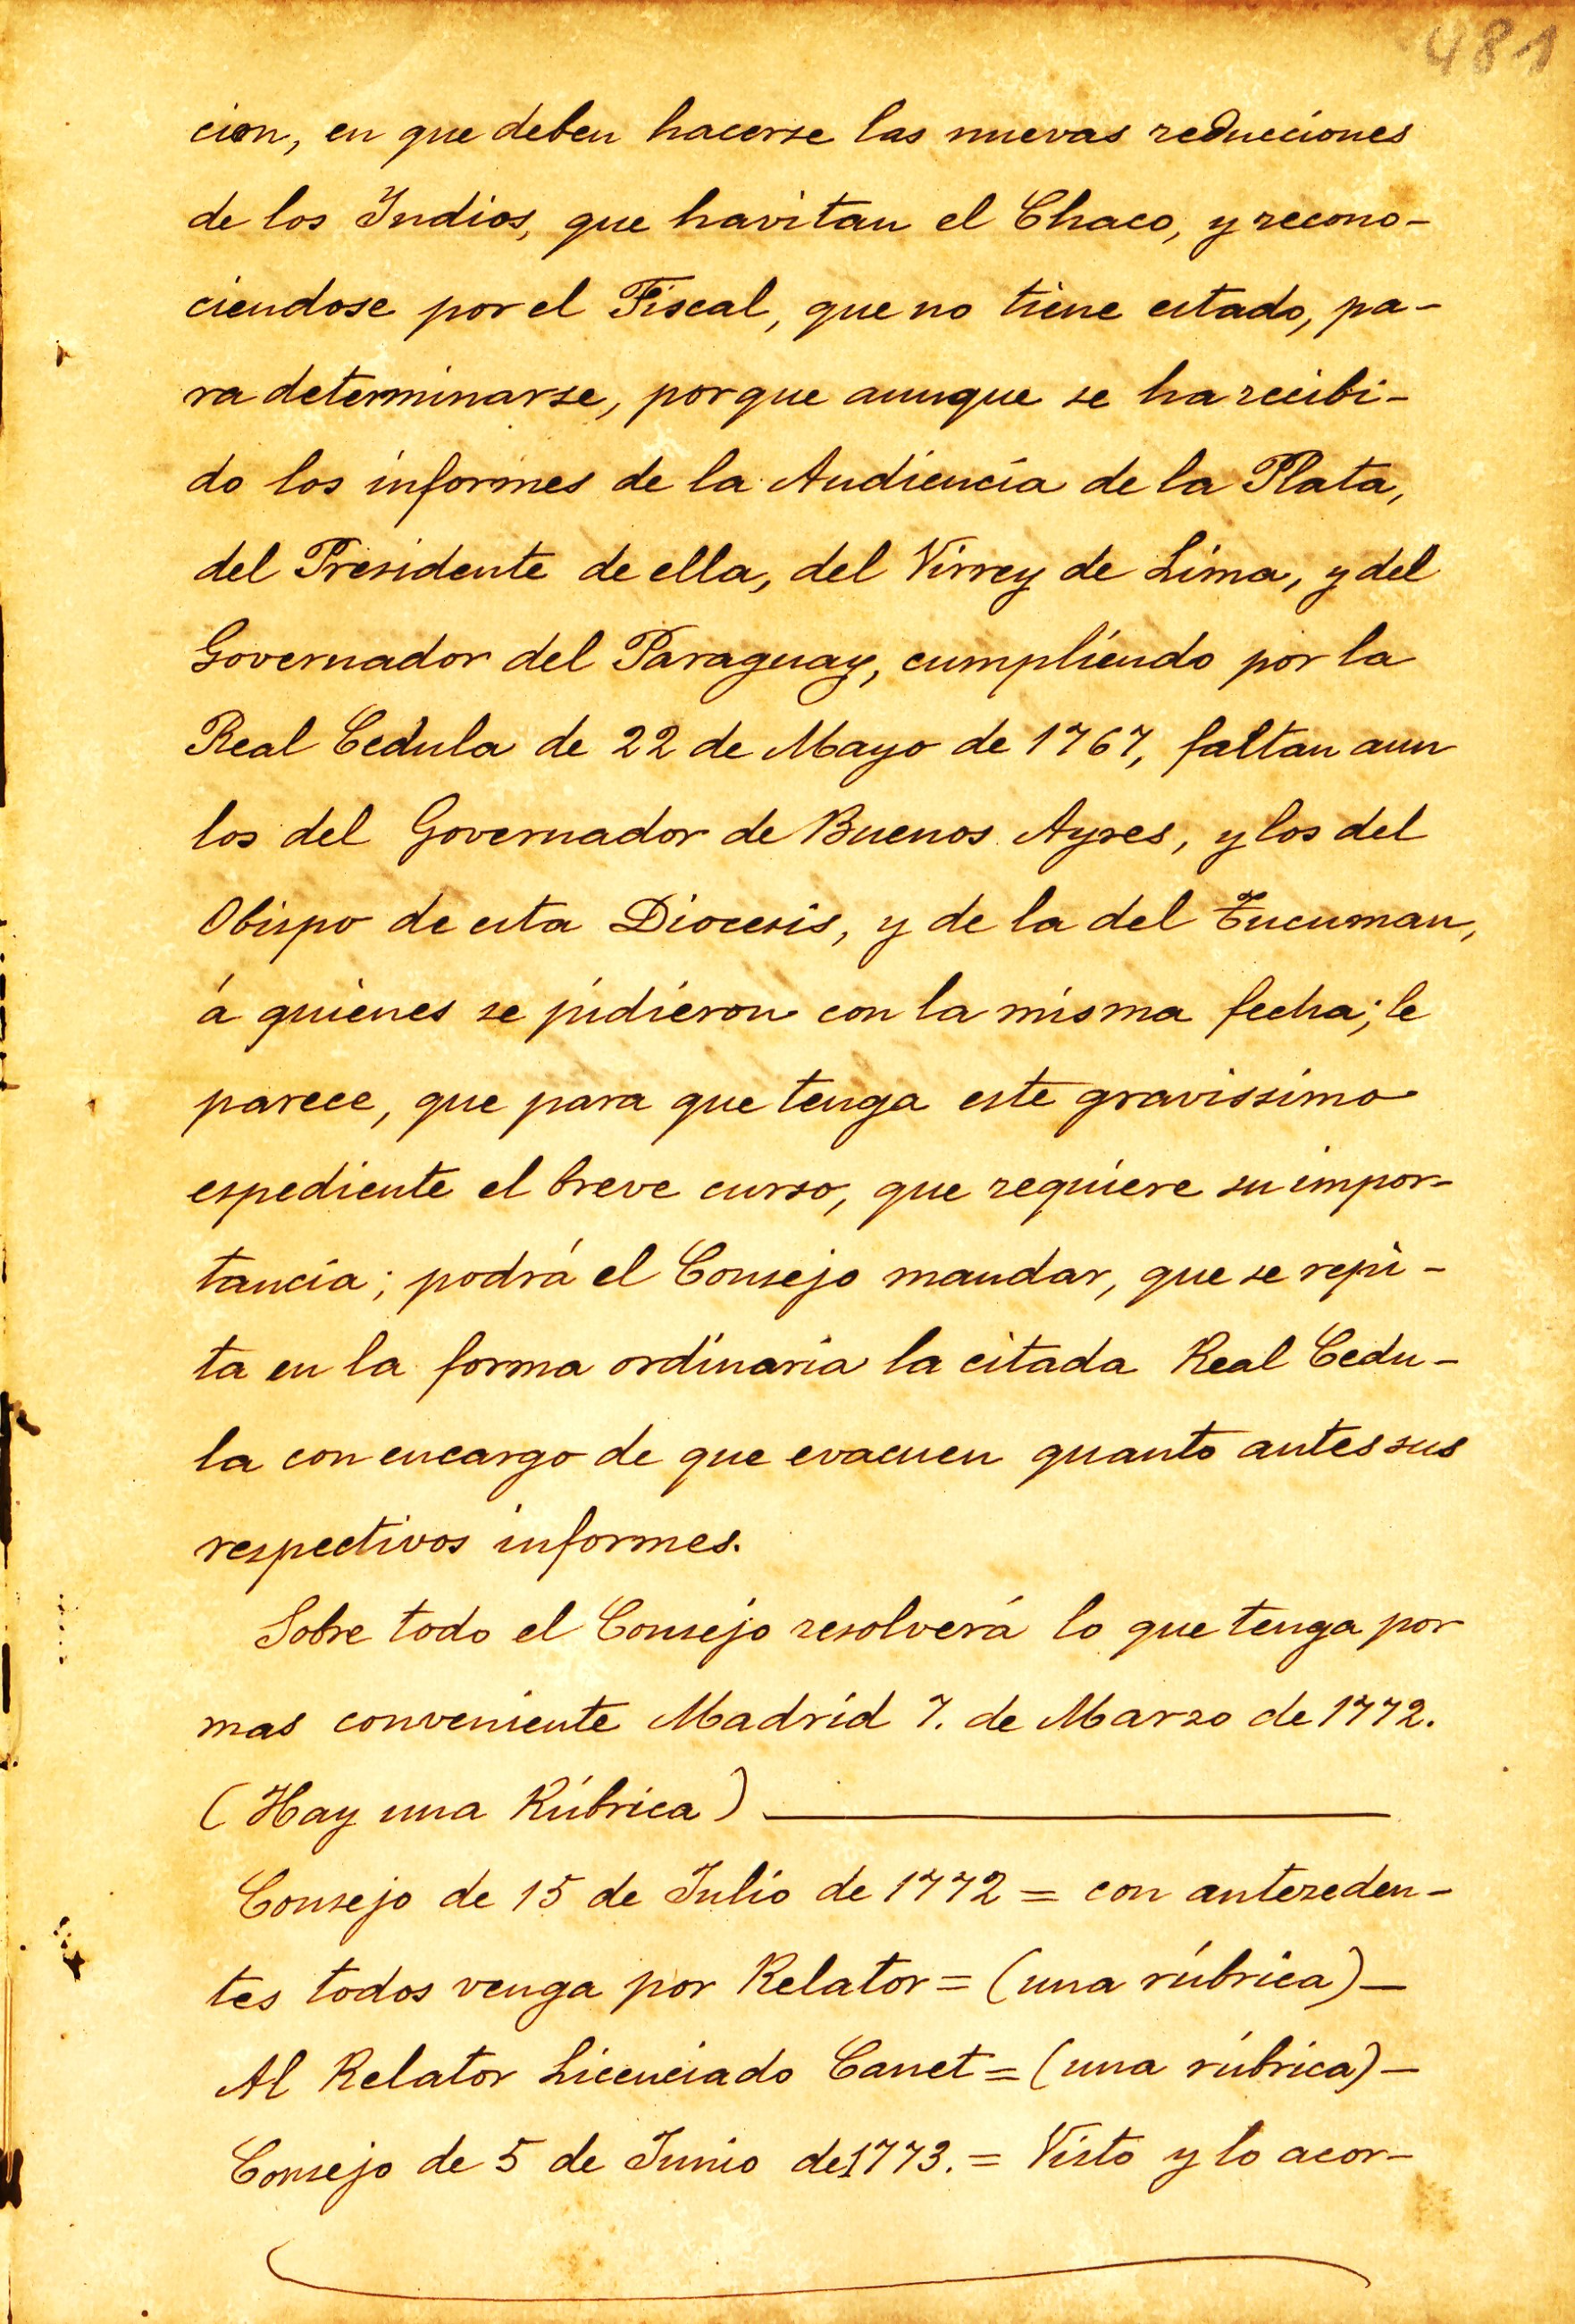 481
cion, en que deben hacerse las nuevas reducciones
de los Indios, que havitan el Chaco, y recono-
ciendose por el Fiscal, que no tiene estado, pa-
ra determinarse, porque aunque se ha recibi-
do los informes de la Audiencia de la Plata,
del Presidente de ella, del Virrey de Lima, y del
Governador del Paraguay, cumpliendo por la
Real Cedula de 22 de Mayo de 1767, faltan aun
los del Governador de Buenos Ayres, y los del
Obispo de esta Diocesis, y de la del Tucuman,
á quienes se pidieron con la misma fecha; le
parece, que para que tenga este gravissimo
espediente el breve curso, que requiere su impor-
tancia; podrá el Consejo mandar, que se repi-
ta en la forma ordinaria la citada Real Cedu-
la con encargo de que evacuen quanto antes sus
respectivos informes.
Sobre todo el Consejo resolverá lo que tenga por
mas conveniente Madrid 7. de Marzo de 1772.
(Hay una Rúbrica)
Consejo de 15 de Julio de 1772 = con anteceden-
tes todos venga por Relator = (una rúbrica) —
Al Relator Licenciado Canet = (una rúbrica) —
Consejo de 5 de Junio de 1773. = Visto y lo acor-